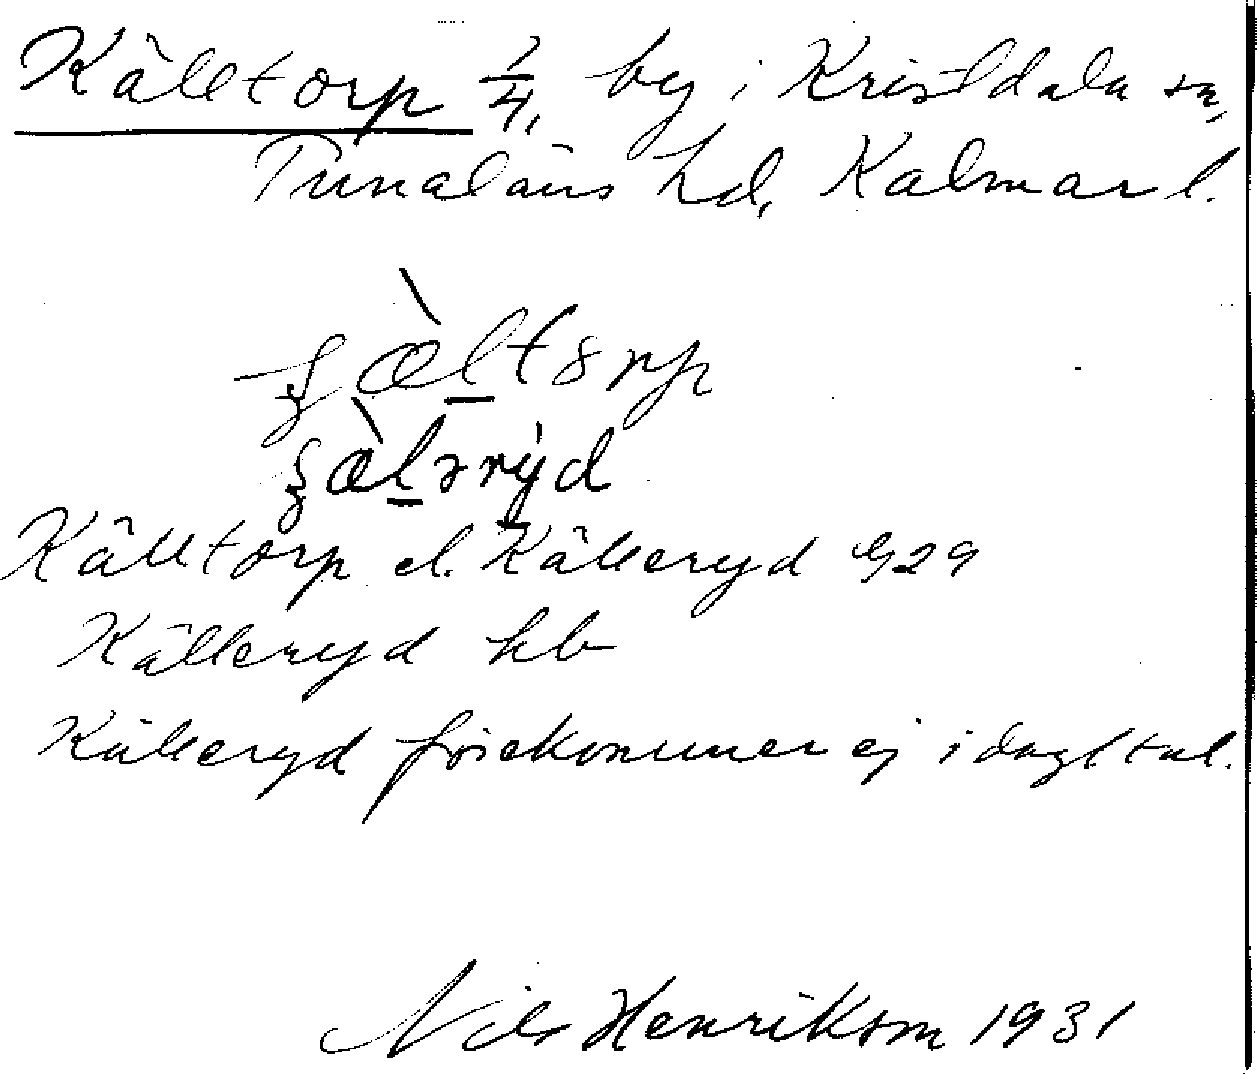 Källtorp 1/4, by i Kristdala sn,
Tunaläns hd, Kalmar l.
Källtorp el. Källeryd G29
Källeryd hb
Källeryd förekommer ej i dagl tal.
Nils Henrikson 1931